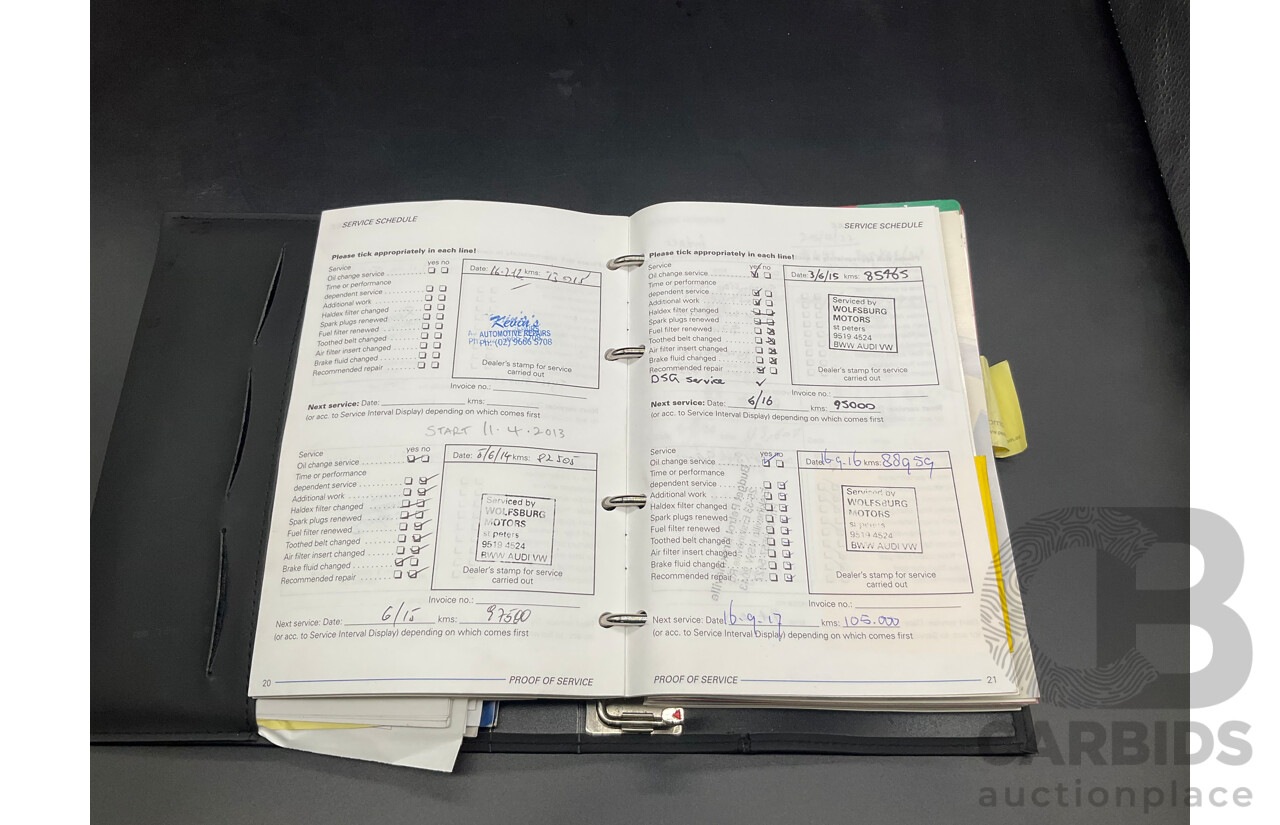 SERVICE SCHEDULE
Please tick appropriately in each line!
yes no
Service
Oil change service
Time or performance
dependent service
Additional work
Haldex filter changed
Spark plugs renewed
Fuel filter renewed
Toothed belt changed
Air filter insert changed
Brake fluid changed
Recommended repair
Date: kms:
Kevin's
AUTOMOTIVE REPAIRS
Ph: (02) 9666 5708
Dealer's stamp for service
carried out
Invoice no.:
Next service: Date: kms:
(or acc. to Service Interval Display) depending on which comes first
START 11.4.2013
yes no
Service
Oil change service
Time or performance
dependent service
Additional work
Haldex filter changed
Spark plugs renewed
Fuel filter renewed
Toothed belt changed
Air filter insert changed
Brake fluid changed
Recommended repair
Date: 5/6/14 kms: 82505
Serviced by
WOLFSBURG
MOTORS
st peters
9519 4524
BWW AUDI VW
Dealer's stamp for service
carried out
Invoice no.:
Next service: Date: 6/15 kms: 97500
(or acc. to Service Interval Display) depending on which comes first
20 PROOF OF SERVICE
SERVICE SCHEDULE
Please tick appropriately in each line!
yes no
Service
Oil change service
Time or performance
dependent service
Additional work
Haldex filter changed
Spark plugs renewed
Fuel filter renewed
Toothed belt changed
Air filter insert changed
Brake fluid changed
Recommended repair
DSG service
Date: 3/6/15 kms: 85465
Serviced by
WOLFSBURG
MOTORS
st peters
9519 4524
BWW AUDI VW
Dealer's stamp for service
carried out
Invoice no.:
Next service: Date: 6/16 kms: 95000
(or acc. to Service Interval Display) depending on which comes first
yes no
Service
Oil change service
Time or performance
dependent service
Additional work
Haldex filter changed
Spark plugs renewed
Fuel filter renewed
Toothed belt changed
Air filter insert changed
Brake fluid changed
Recommended repair
Date: 16.9.16 kms: 88959
Serviced by
WOLFSBURG
MOTORS
st peters
9519 4524
BWW AUDI VW
Dealer's stamp for service
carried out
Invoice no.:
Next service: Date: 16.9.17 kms: 105.000
(or acc. to Service Interval Display) depending on which comes first
PROOF OF SERVICE 21
CB
CARBIDS
auctionplace